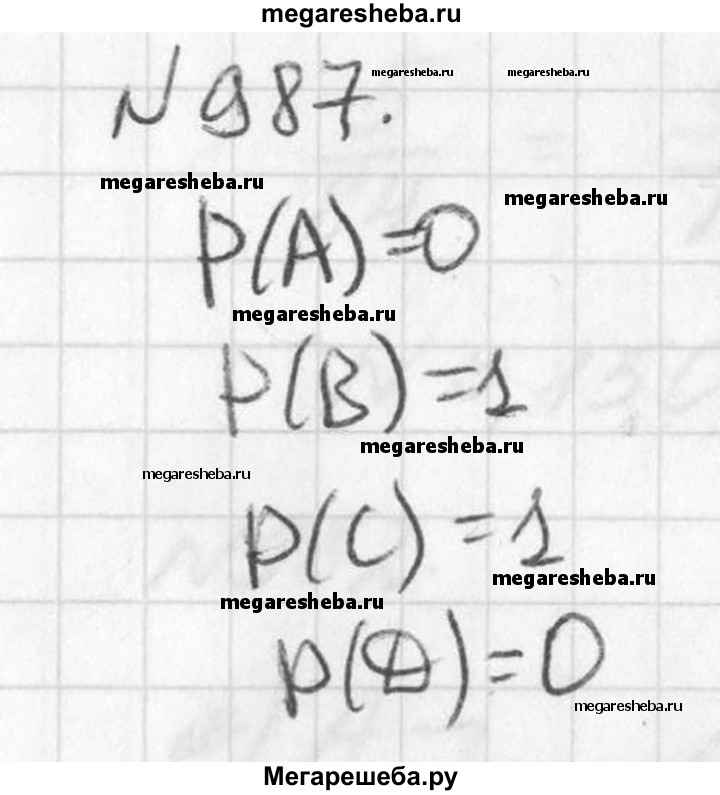 megaresheba.ru
№ 987.
megaresheba.ru megaresheba.ru
megaresheba.ru
megaresheba.ru
P(A)=0
megaresheba.ru
P(B)=1
megaresheba.ru
megaresheba.ru
P(C)=1
megaresheba.ru
megaresheba.ru
P(D)=0
megaresheba.ru
Мегарешеба.ру